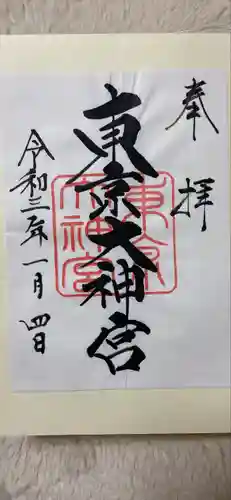 奉拝
東京大神宮
東京大神宮
令和三年一月四日